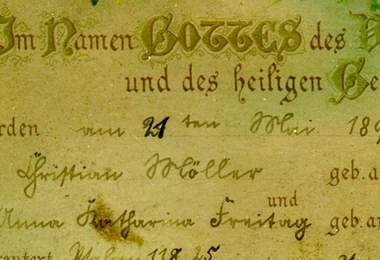 Im Namen GOTTES des
und des heiligen Ge
rden am 21 ten Mai 189
Christian Möller geb. a
und
Anna Katharina Freitag geb. a